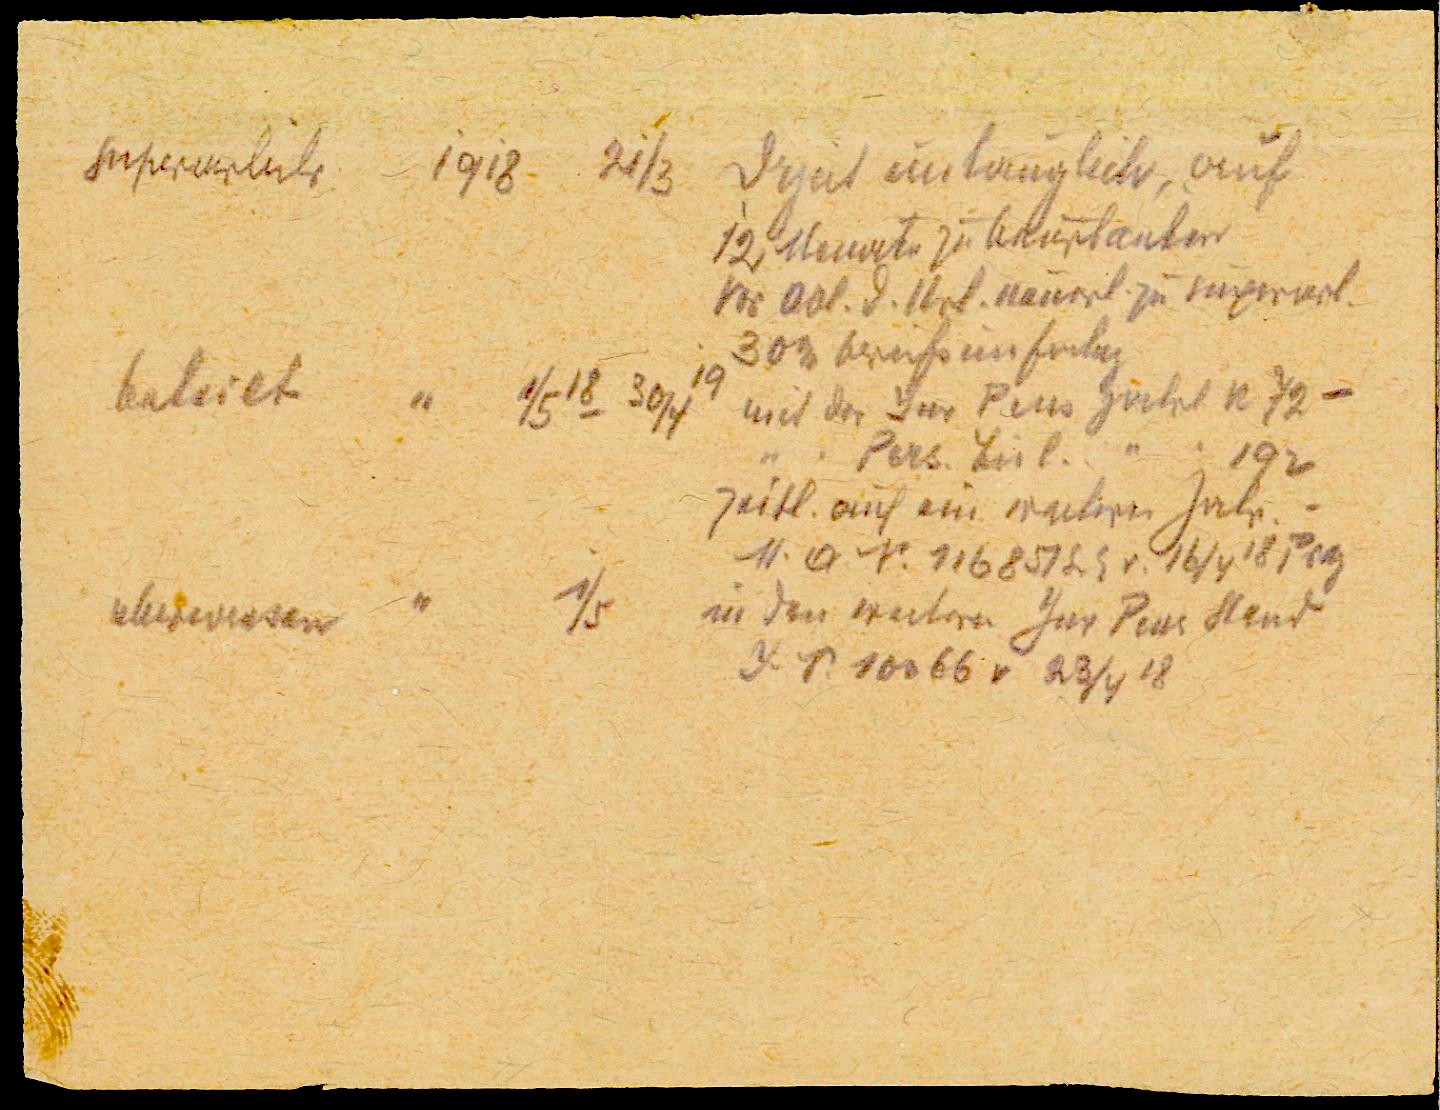 superarbitr 1918 21/3 Dzeit untauglich, auf
12 Monate zu beurlauben
Vor Abl. d. Url. neuerl. zu superarb.
30% berufsunfähig
beteilt " 1/5 18 30/4 19 mit der Inv Pens jährl K 72 –
" Pers. Zul. " 192
zeitl. auf ein weiteres Jahr. –
M. A. N. 11685 v. 16/4 18 Prg
überwiesen " 1/5 in den weiteren Inv Pens Stand
N. 10066 v 23/4 18